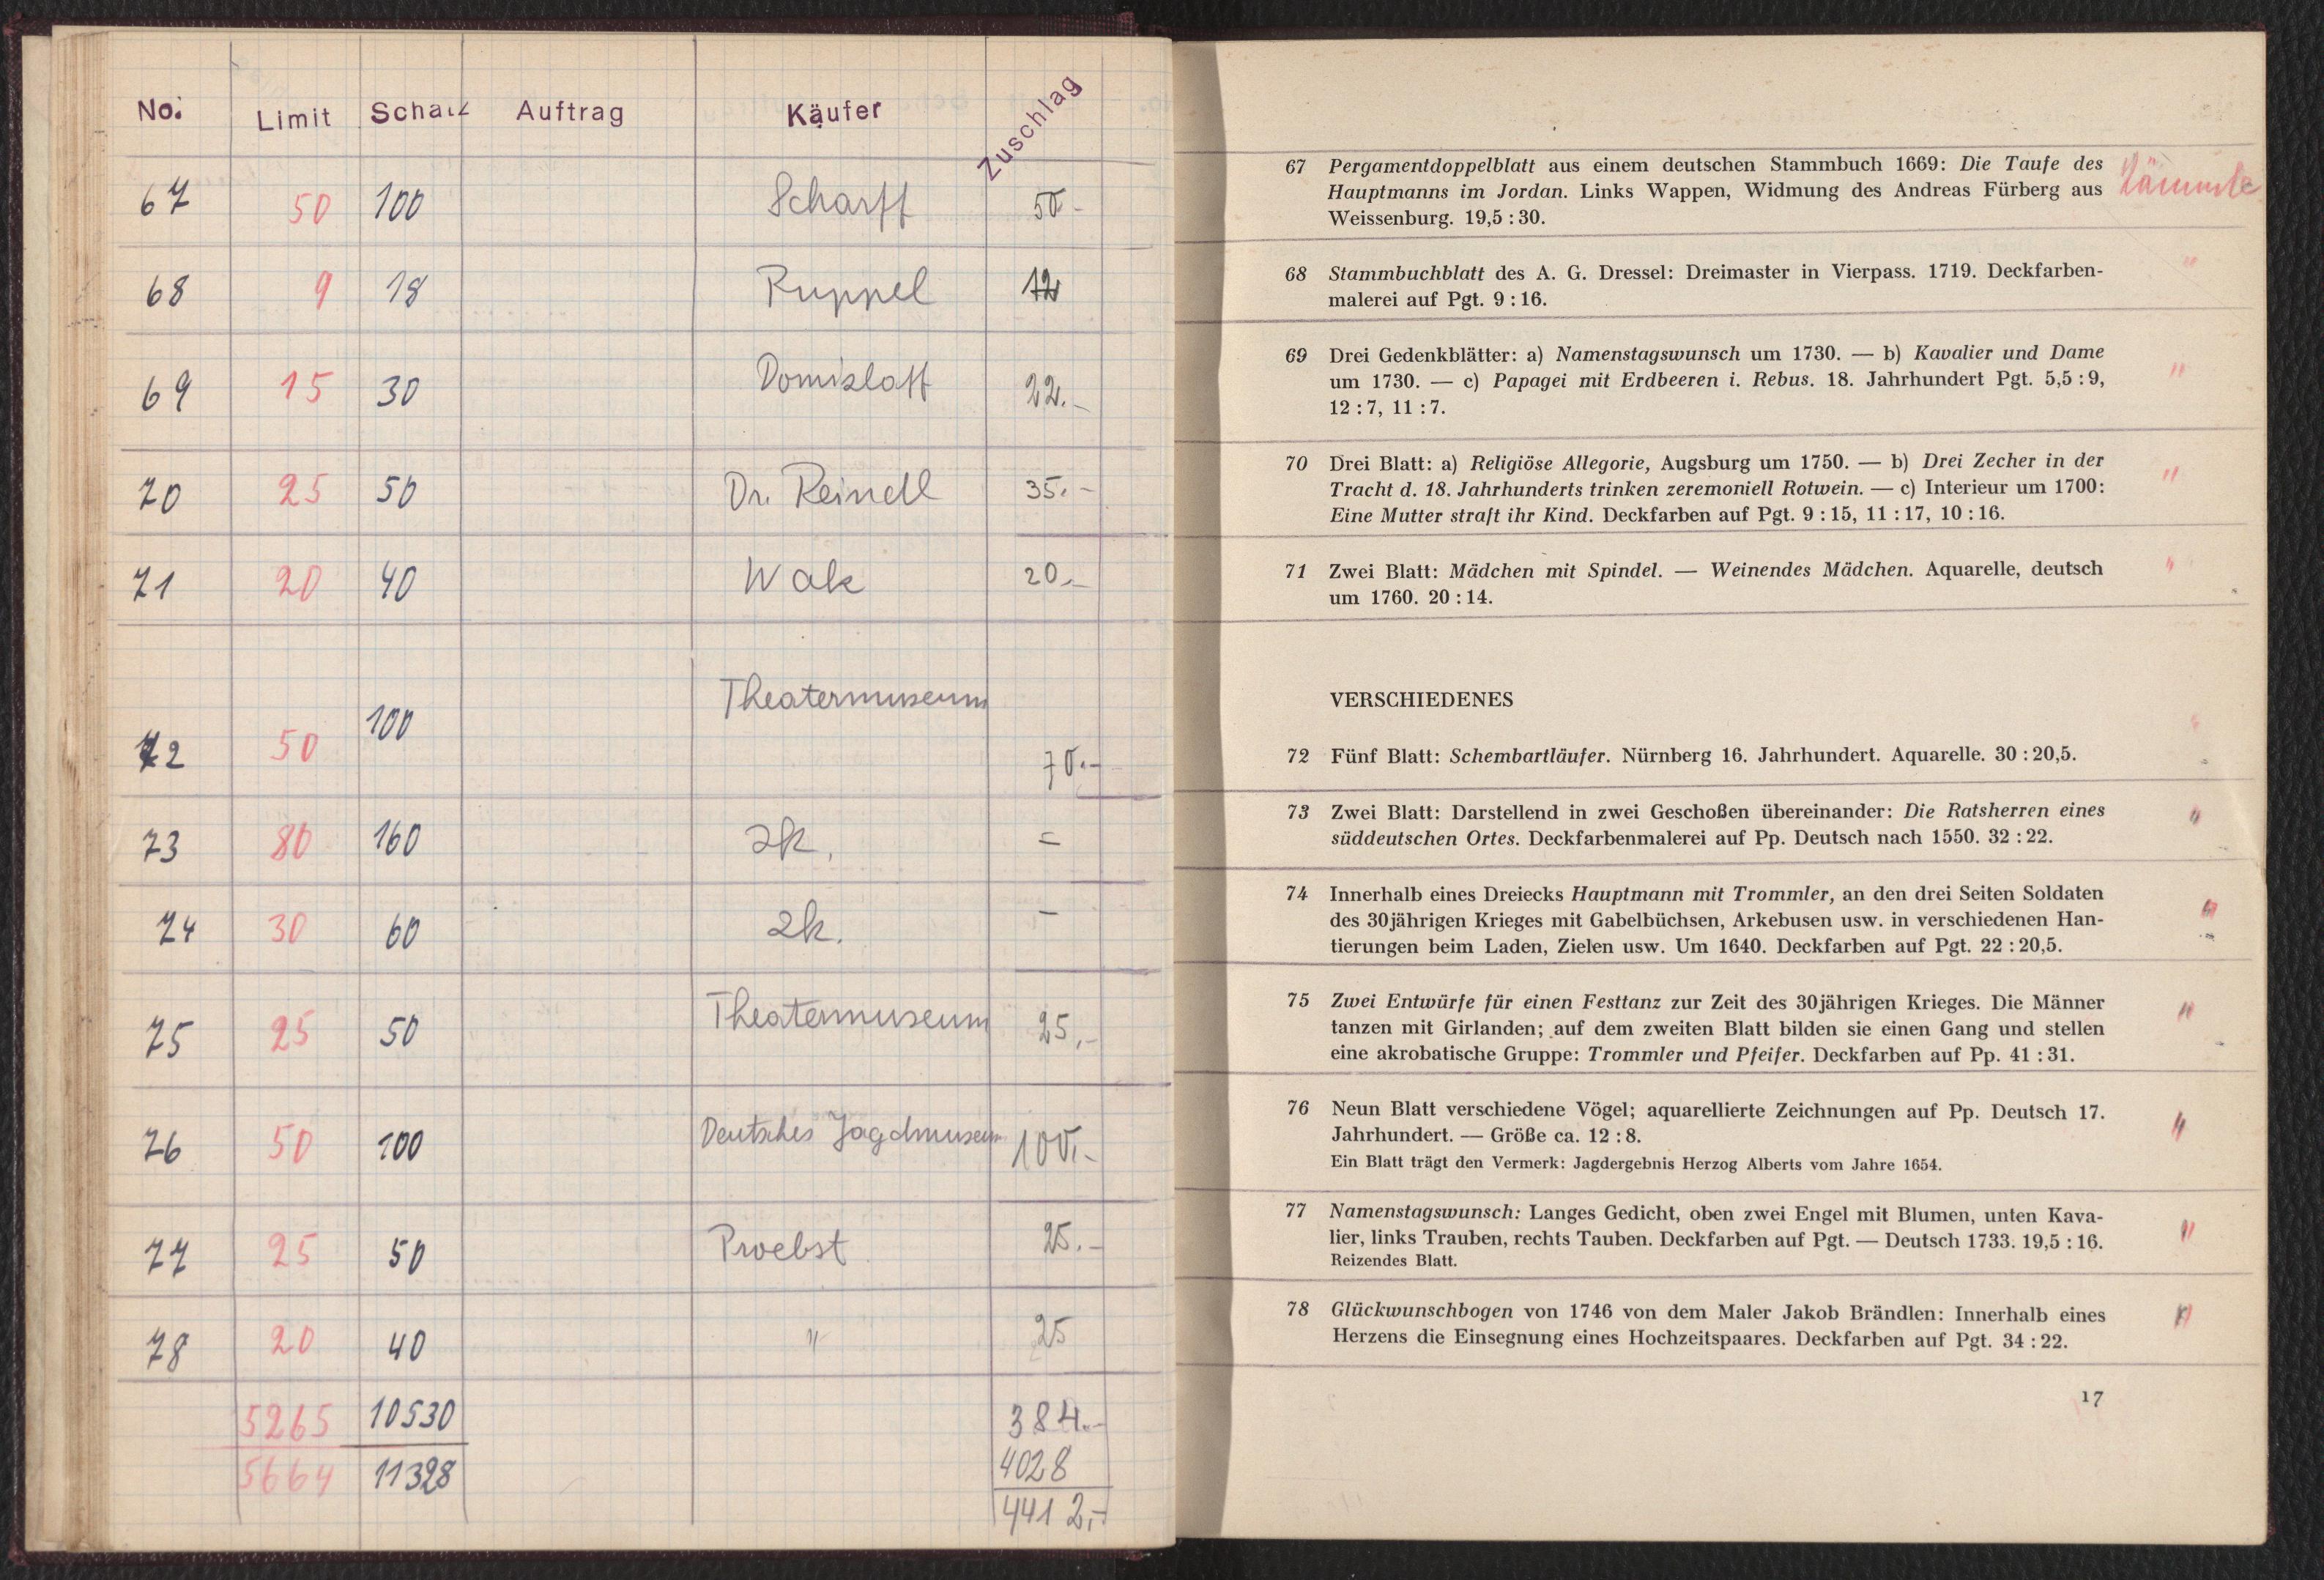 No. Limit Schatz Auftrag Käufer Zuschlag
67 50 100 Scharff 50.-
68 9 18 Ruppel 12
69 15 30 Domizlaff 22.-
70 25 50 Dr. Reindl 35.-
71 20 40 Wak 20.-
72 50 100 Theatermuseum 70.-
73 80 160 zk. =
74 30 60 zk. -
75 25 50 Theatermuseum 25,-
76 50 100 Deutsches Jagdmuseum 100.-
77 25 50 Proebst 25.-
78 20 40 " 25
5265 10530 384.-
5664 11328 4028
4412,-
67 Pergamentdoppelblatt aus einem deutschen Stammbuch 1669: Die Taufe des
Hauptmanns im Jordan. Links Wappen, Widmung des Andreas Fürberg aus
Weissenburg. 19,5 : 30.
68 Stammbuchblatt des A. G. Dressel: Dreimaster in Vierpass. 1719. Deckfarben- "
malerei auf Pgt. 9 : 16.
69 Drei Gedenkblätter: a) Namenstagswunsch um 1730. — b) Kavalier und Dame
um 1730. — c) Papagei mit Erdbeeren i. Rebus. 18. Jahrhundert Pgt. 5,5 : 9, "
12 : 7, 11 : 7.
70 Drei Blatt: a) Religiöse Allegorie, Augsburg um 1750. — b) Drei Zecher in der "
Tracht d. 18. Jahrhunderts trinken zeremoniell Rotwein. — c) Interieur um 1700:
Eine Mutter straft ihr Kind. Deckfarben auf Pgt. 9 : 15, 11 : 17, 10 : 16.
71 Zwei Blatt: Mädchen mit Spindel. — Weinendes Mädchen. Aquarelle, deutsch "
um 1760. 20 : 14.
VERSCHIEDENES
72 Fünf Blatt: Schembartläufer. Nürnberg 16. Jahrhundert. Aquarelle. 30 : 20,5.
73 Zwei Blatt: Darstellend in zwei Geschoßen übereinander: Die Ratsherren eines "
süddeutschen Ortes. Deckfarbenmalerei auf Pp. Deutsch nach 1550. 32 : 22.
74 Innerhalb eines Dreiecks Hauptmann mit Trommler, an den drei Seiten Soldaten "
des 30jährigen Krieges mit Gabelbüchsen, Arkebusen usw. in verschiedenen Han-
tierungen beim Laden, Zielen usw. Um 1640. Deckfarben auf Pgt. 22 : 20,5.
75 Zwei Entwürfe für einen Festtanz zur Zeit des 30jährigen Krieges. Die Männer "
tanzen mit Girlanden; auf dem zweiten Blatt bilden sie einen Gang und stellen
eine akrobatische Gruppe: Trommler und Pfeifer. Deckfarben auf Pp. 41 : 31.
76 Neun Blatt verschiedene Vögel; aquarellierte Zeichnungen auf Pp. Deutsch 17. "
Jahrhundert. — Größe ca. 12 : 8.
Ein Blatt trägt den Vermerk: Jagdergebnis Herzog Alberts vom Jahre 1654.
77 Namenstagswunsch: Langes Gedicht, oben zwei Engel mit Blumen, unten Kava- "
lier, links Trauben, rechts Tauben. Deckfarben auf Pgt. — Deutsch 1733. 19,5 : 16.
Reizendes Blatt.
78 Glückwunschbogen von 1746 von dem Maler Jakob Brändlen: Innerhalb eines "
Herzens die Einsegnung eines Hochzeitspaares. Deckfarben auf Pgt. 34 : 22.
17